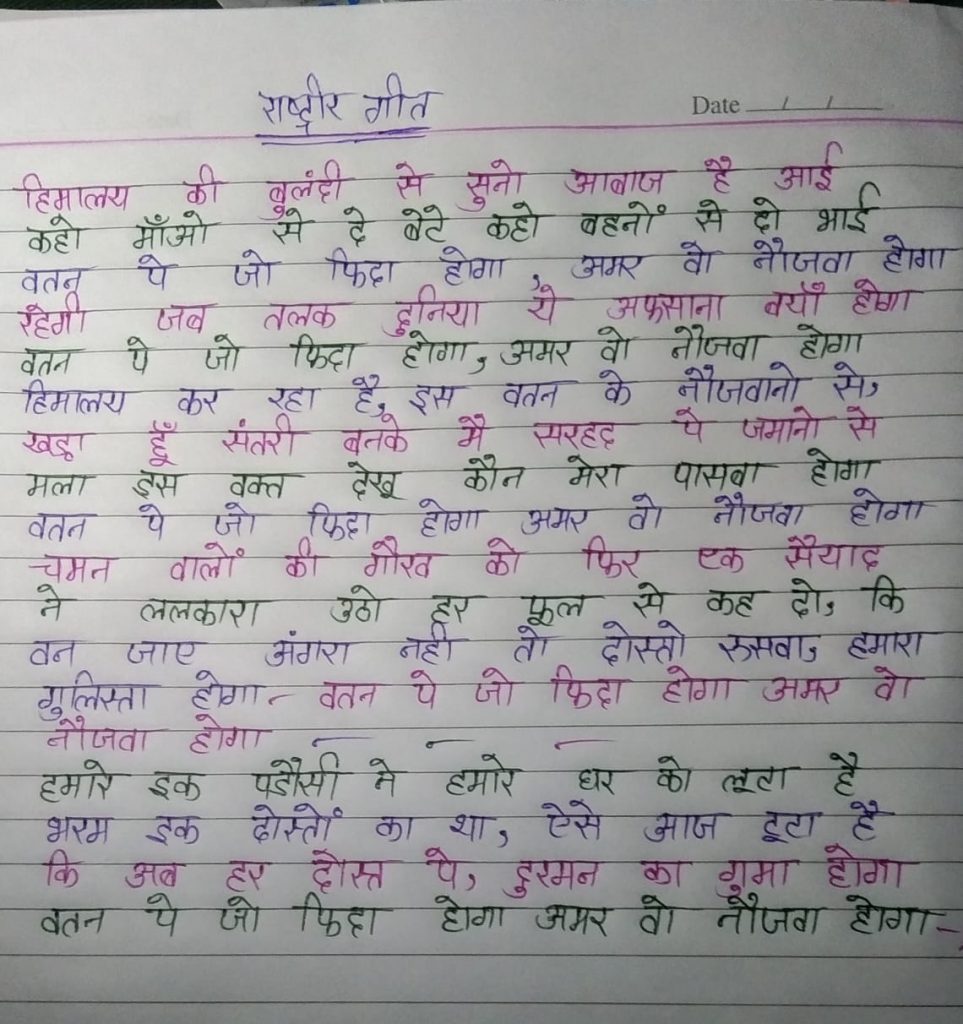 राष्ट्रीर गीत
Date __/__/__
हिमालय की बुलंदी से सुनो आबाज है आई
कहो माँओ से दे बेटे कहो बहनों से दो भाई
वतन पे जो फिदा होगा, अमर वो नौजवा होगा
रहेगी जब तलक दुनिया ये अफसाना वयाँ होगा
वतन पे जो फिदा होगा, अमर वो नौजवा होगा
हिमालय कर रहा है, इस वतन के नौजवानो से,
खड़ा हूँ संतरी बनके मै सरहद पे जमानो से
मला इस वक्त देखू कौन मेरा पासबा होगा
वतन पे जो फिदा होगा अमर वो नौजवा होगा
चमन वालों की गौरव को फिर एक सैयाद
ने ललकारा उठो हर फूल से कह दो, कि
वन जाए अंगरा नही तो दोस्तो रुसवा, हमारा
गुलिस्ता होगा - वतन पे जो फिदा होगा अमर वो
नौजवा होगा — - —
हमारे इक पडौसी ने हमारे घर को लूटा है
भरम इक दोस्तों का था, ऐसे आज टूटा है
कि अब हर दोस्त पे, दुश्मन का गुमा होगा
वतन पे जो फिदा होगा अमर वो नौजवा होगा -